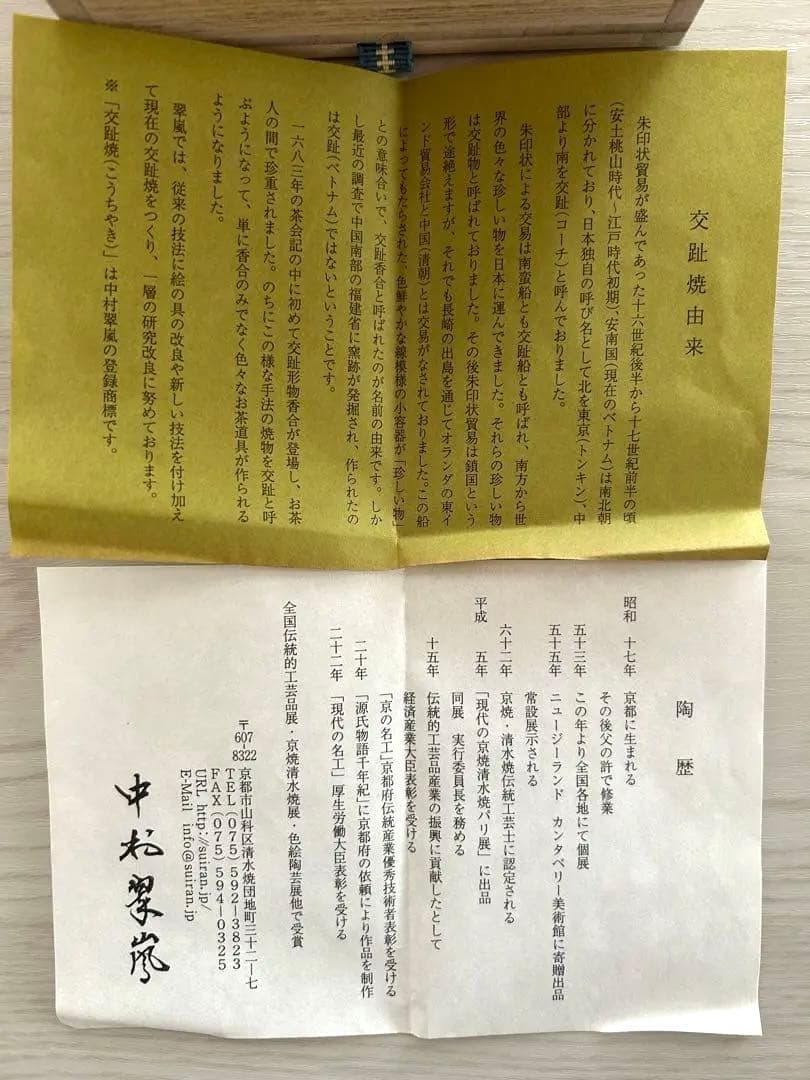 交趾焼由来
朱印状貿易が盛んであった十六世紀後半から十七世紀前半の頃
（安土桃山時代～江戸時代初期）、安南国（現在のベトナム）は南北朝
に分かれており、日本独自の呼び名として北を東京（トンキン）、中
部より南を交趾（コーチ）と呼んでおりました。
朱印状による交易は南蛮船とも交趾船とも呼ばれ、南方から世
界の色々な珍しい物を日本に運んできました。それらの珍しい物
は交趾物と呼ばれておりました。その後朱印状貿易は鎖国という
形で途絶えますが、それでも長崎の出島を通じてオランダの東イ
ンド貿易会社と中国（清朝）とは交易がなされておりました。この船
によってもたらされた、色鮮やかな線模様の小容器が「珍しい物」
との意味合いで、交趾香合と呼ばれたのが名前の由来です。しか
し最近の調査で中国南部の福建省に窯跡が発掘され、作られたの
は交趾（ベトナム）ではないということです。
一六八三年の茶会記の中に初めて交趾形物香合が登場し、お茶
人の間で珍重されました。のちにこの様な手法の焼物を交趾と呼
ぶようになって、単に香合のみでなく色々なお茶道具が作られる
ようになりました。
翠嵐では、従来の技法に絵の具の改良や新しい技法を付け加え
て現在の交趾焼をつくり、一層の研究改良に努めております。
※「交趾焼（こうちやき）」は中村翠嵐の登録商標です。
陶歴
昭和 十七年 京都に生まれる
その後父の許で修業
五十三年 この年より全国各地にて個展
五十五年 ニュージーランド カンタベリー美術館に寄贈出品
常設展示される
六十二年 京焼・清水焼伝統工芸士に認定される
平成 五年 「現代の京焼清水焼パリ展」に出品
同展 実行委員長を務める
十五年 伝統的工芸品産業の振興に貢献したとして
経済産業大臣表彰を受ける
「京の名工」京都府伝統産業優秀技術者表彰を受ける
二十年 「源氏物語千年紀」に京都府の依頼により作品を制作
二十二年 「現代の名工」厚生労働大臣表彰を受ける
全国伝統的工芸品展・京焼清水焼展・色絵陶芸展他で受賞
〒607-8322 京都市山科区清水焼団地町三十二ー七
TEL（075）592ー3823
FAX（075）594ー0325
URL http://suiran.jp/
E-Mail info@suiran.jp
中村翠嵐